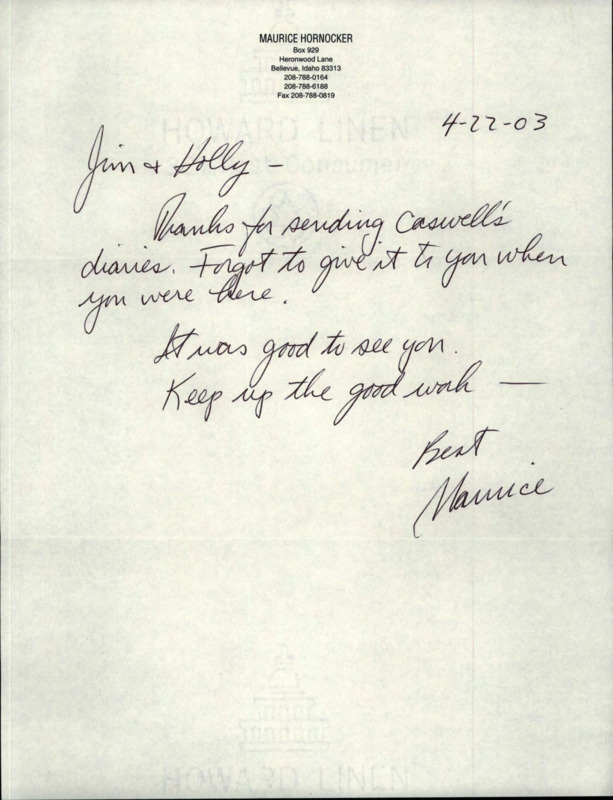 MAURICE HORNOCKER
Box 929
Heronwood Lane
Bellevue, Idaho 83313
208-788-0164
208-788-6188
Fax 208-788-0819
HOWARD LINEN
Consumer
4-22-03
Jim + Holly –
Thanks for sending Caswell's
diaries. Forgot to give it to you when
you were here.
It was good to see you.
Keep up the good work —
Best
Maurice
HOWARD LINEN